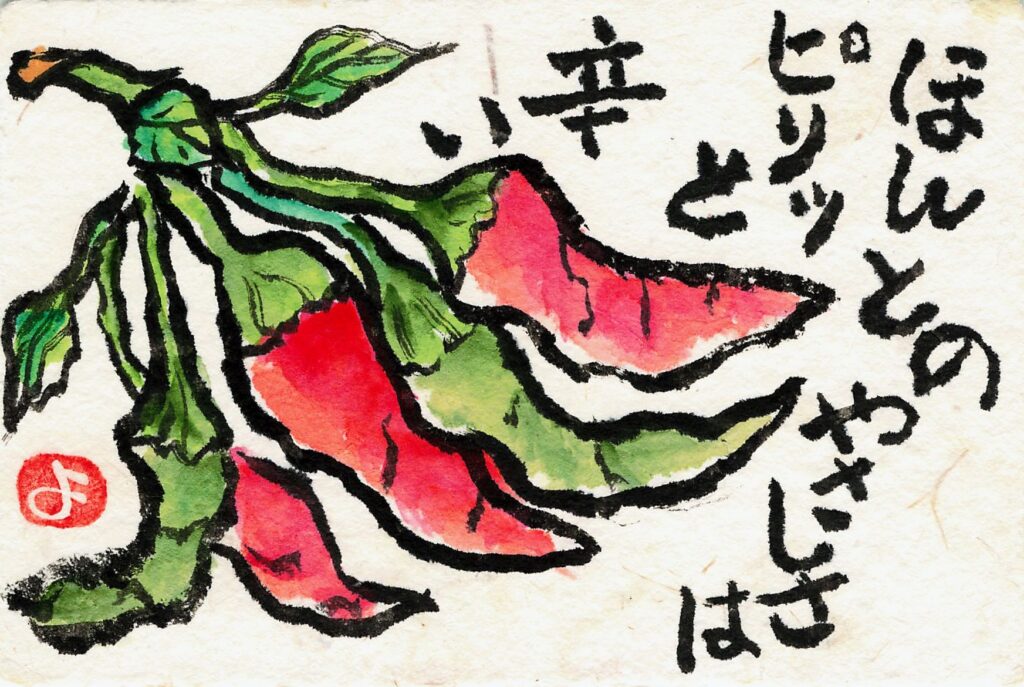 ほんとの
やさしさは
ピリッと
辛い
よ